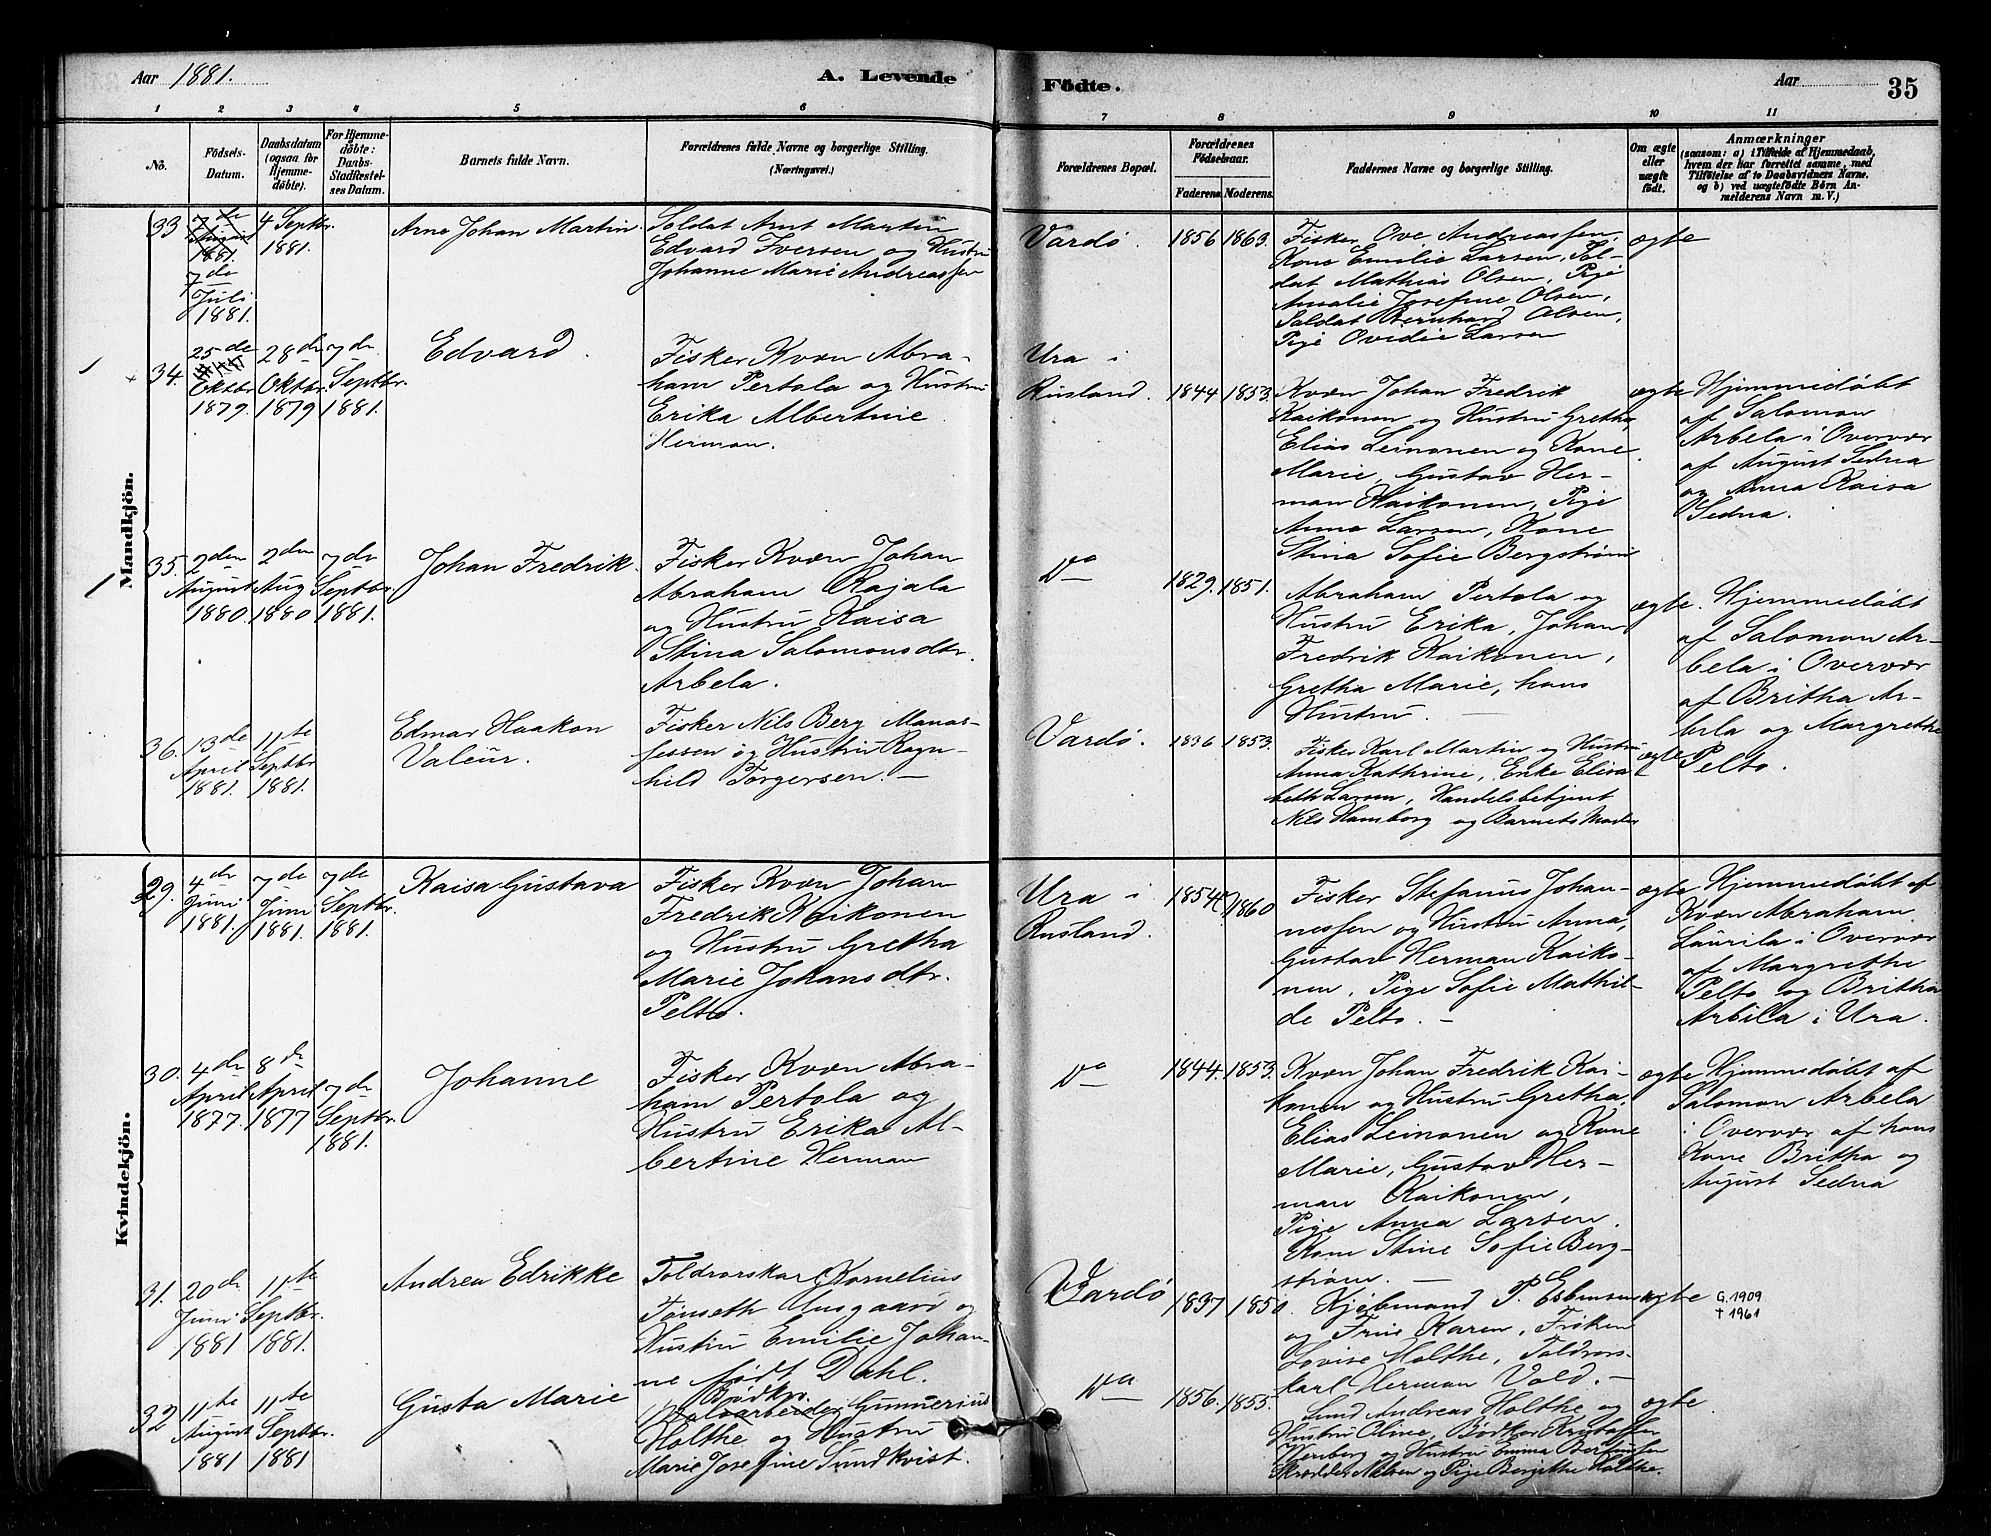 Aar 1881.
A. Levende
Födte.
Aar
35
1 2 3 4 5 6 7 8 9 10 11
No.
Födsels-
Datum.
Daabsdatum
(ogsaa for
Hjemme-
döbte).
For Hjemme-
döbte:
Daabs-
Stadfæstel-
ses Datum.
Barnets fulde Navn.
Forældrenes fulde Navne og borgerlige Stilling.
(Næringsvei.)
Forældrenes Bopæl.
Forældrenes
Födselsaar.
Faderens. Moderens.
Faddernes Navne og borgerlige Stilling.
Om ægte
eller
uægte
födt.
Anmærkninger
(saasom: a) i Tilfælde af Hjemmedaab,
hvem der har forrettet samme, med
Tilföielse af to Daabsvidners Navne.
og b) ved uægtefödte Börn An-
melderens Navn m. V.)
Mandkjön.
33
7de
August
1881.
7de
Juli
1881.
4 Septbr.
1881.
Arne Johan Martin.
Soldat Arnt Martin
Edvard Iversen og Hustru
Johanne Marie Andreassen
Vardö.
1856 1863.
Fisker Ove Andreassen,
Kone Emilie Larsen, Sol-
dat Mathias Olsen, Pige
Amalie Josefine Olsen,
Soldat Bernhard Olsen,
Pige Ovidie Larsen
ægte
34.
25de
Oktbr.
1879.
28de
Oktbr.
1879
7de
Septbr.
1881.
Edvard.
Fisker Kvæn Abra-
ham Pertola og Hustru
Erika Albertine
Herman.
Ura i
Rusland.
1844 1853.
Kvæn Johan Fredrik
Kaikonen og Hustru Gretha,
Elias Leinonen og Kone
Marie, Gustav Her-
man Kaikonen, Pige
Anna Larsen, Kone
Stina Sofie Bergström
ægte
Hjemmedöbt
af Salomon
Arbela i Overvær
af August Sedna
og Anna Kaisa
Sedna.
35.
2den
August
1880.
2den
Aug
1880
7de
Septbr.
1881.
Johan Fredrik.
Fisker Kvæn Johan
Abraham Rajala
og Hustru Kaisa
Stina Salomonsdtr.
Arbela.
Do
1829. 1851.
Abraham Pertola og
Hustru Erika, Johan
Fredrik Kaikonen,
Gretha Marie, hans
Hustru.
ægte.
Hjemmedöbt
af Salomon Ar-
bela i Overvær
af Britha Ar-
bela og Margrethe
Pelto.
36.
13de
April
1881.
11te
Septbr.
1881.
Edmar Haakon
Valeur.
Fisker Nils Berg Manas-
sessen og Hustru Ragn-
hild Torgersen. –
Vardö.
1836 1853.
Fisker Karl Martin og Hustru
Anna Kathrine, Enke Elisa-
beth Larsen, Handelsbetjent
Nils Hamborg og Barnets Moder
ægte
Kvindekjön.
29.
4de
Juni
1881.
7de
Juni
1881.
7de
Septbr.
1881.
Kaisa Gustava
Fisker Kvæn Johan
Fredrik Kaikonen
og Hustru Gretha
Marie Johansdtr.
Pelto.
Ura i
Rusland.
1854 1860
Fisker Stefanus Johan-
nessen og Hustru Anna,
Gustav Herman Kaiko-
nen, Pige Sofie Mathil-
de Pelto. –
ægte
Hjemmedöbt af
Kvæn Abraham
Laurila i Overvær
af Margrethe
Pelto og Britha
Arbela i Ura.
30.
4de
April
1877.
8de
April
1877
7de
Septbr.
1881.
Johanne
Fisker Kvæn Abra-
ham Pertola og
Hustru Erika Al-
bertine Herman
Do
1844. 1853.
Kvæn Johan Fredrik Kai-
konen og Hustru Gretha,
Elias Leinonen og Kone
Marie, Gustav Her-
man Kaikonen,
Pige Anna Larsen.
Kone Stine Sofie Berg-
ström. –
ægte
Hjemmedöbt af
Salomon Arbela
i Overvær af hans
Kone Britha og
August Sedna
31.
20de
Juni
1881
11te
Septbr.
1881.
Andrea Edrikke
Toldrorskar Kornelius
Tønseth Ausgaard og
Hustru Emilie Johan-
ne født Dahl.
Vardö
1837 1850.
Kjöbmand P. Esbensen
og Frue Karen, Fröken
Lovise Holthe, Toldrors-
karl Herman Vold. –
ægte
G. 1909
† 1961
32
11te
August
1881
11te
Septbr.
1881
Gusta Marie
Bødker
Gunnerius
Holthe og Hustru
Marie Josefine Sundkvist.
Do
1856. 1855.
Andreas Holthe og
Hustru Oline, Bødker Kristoffer
Wernberg og Hustru Emma Berntsen
Skrædder Nelsen og Pige Bergithe Holthe.
ægte.